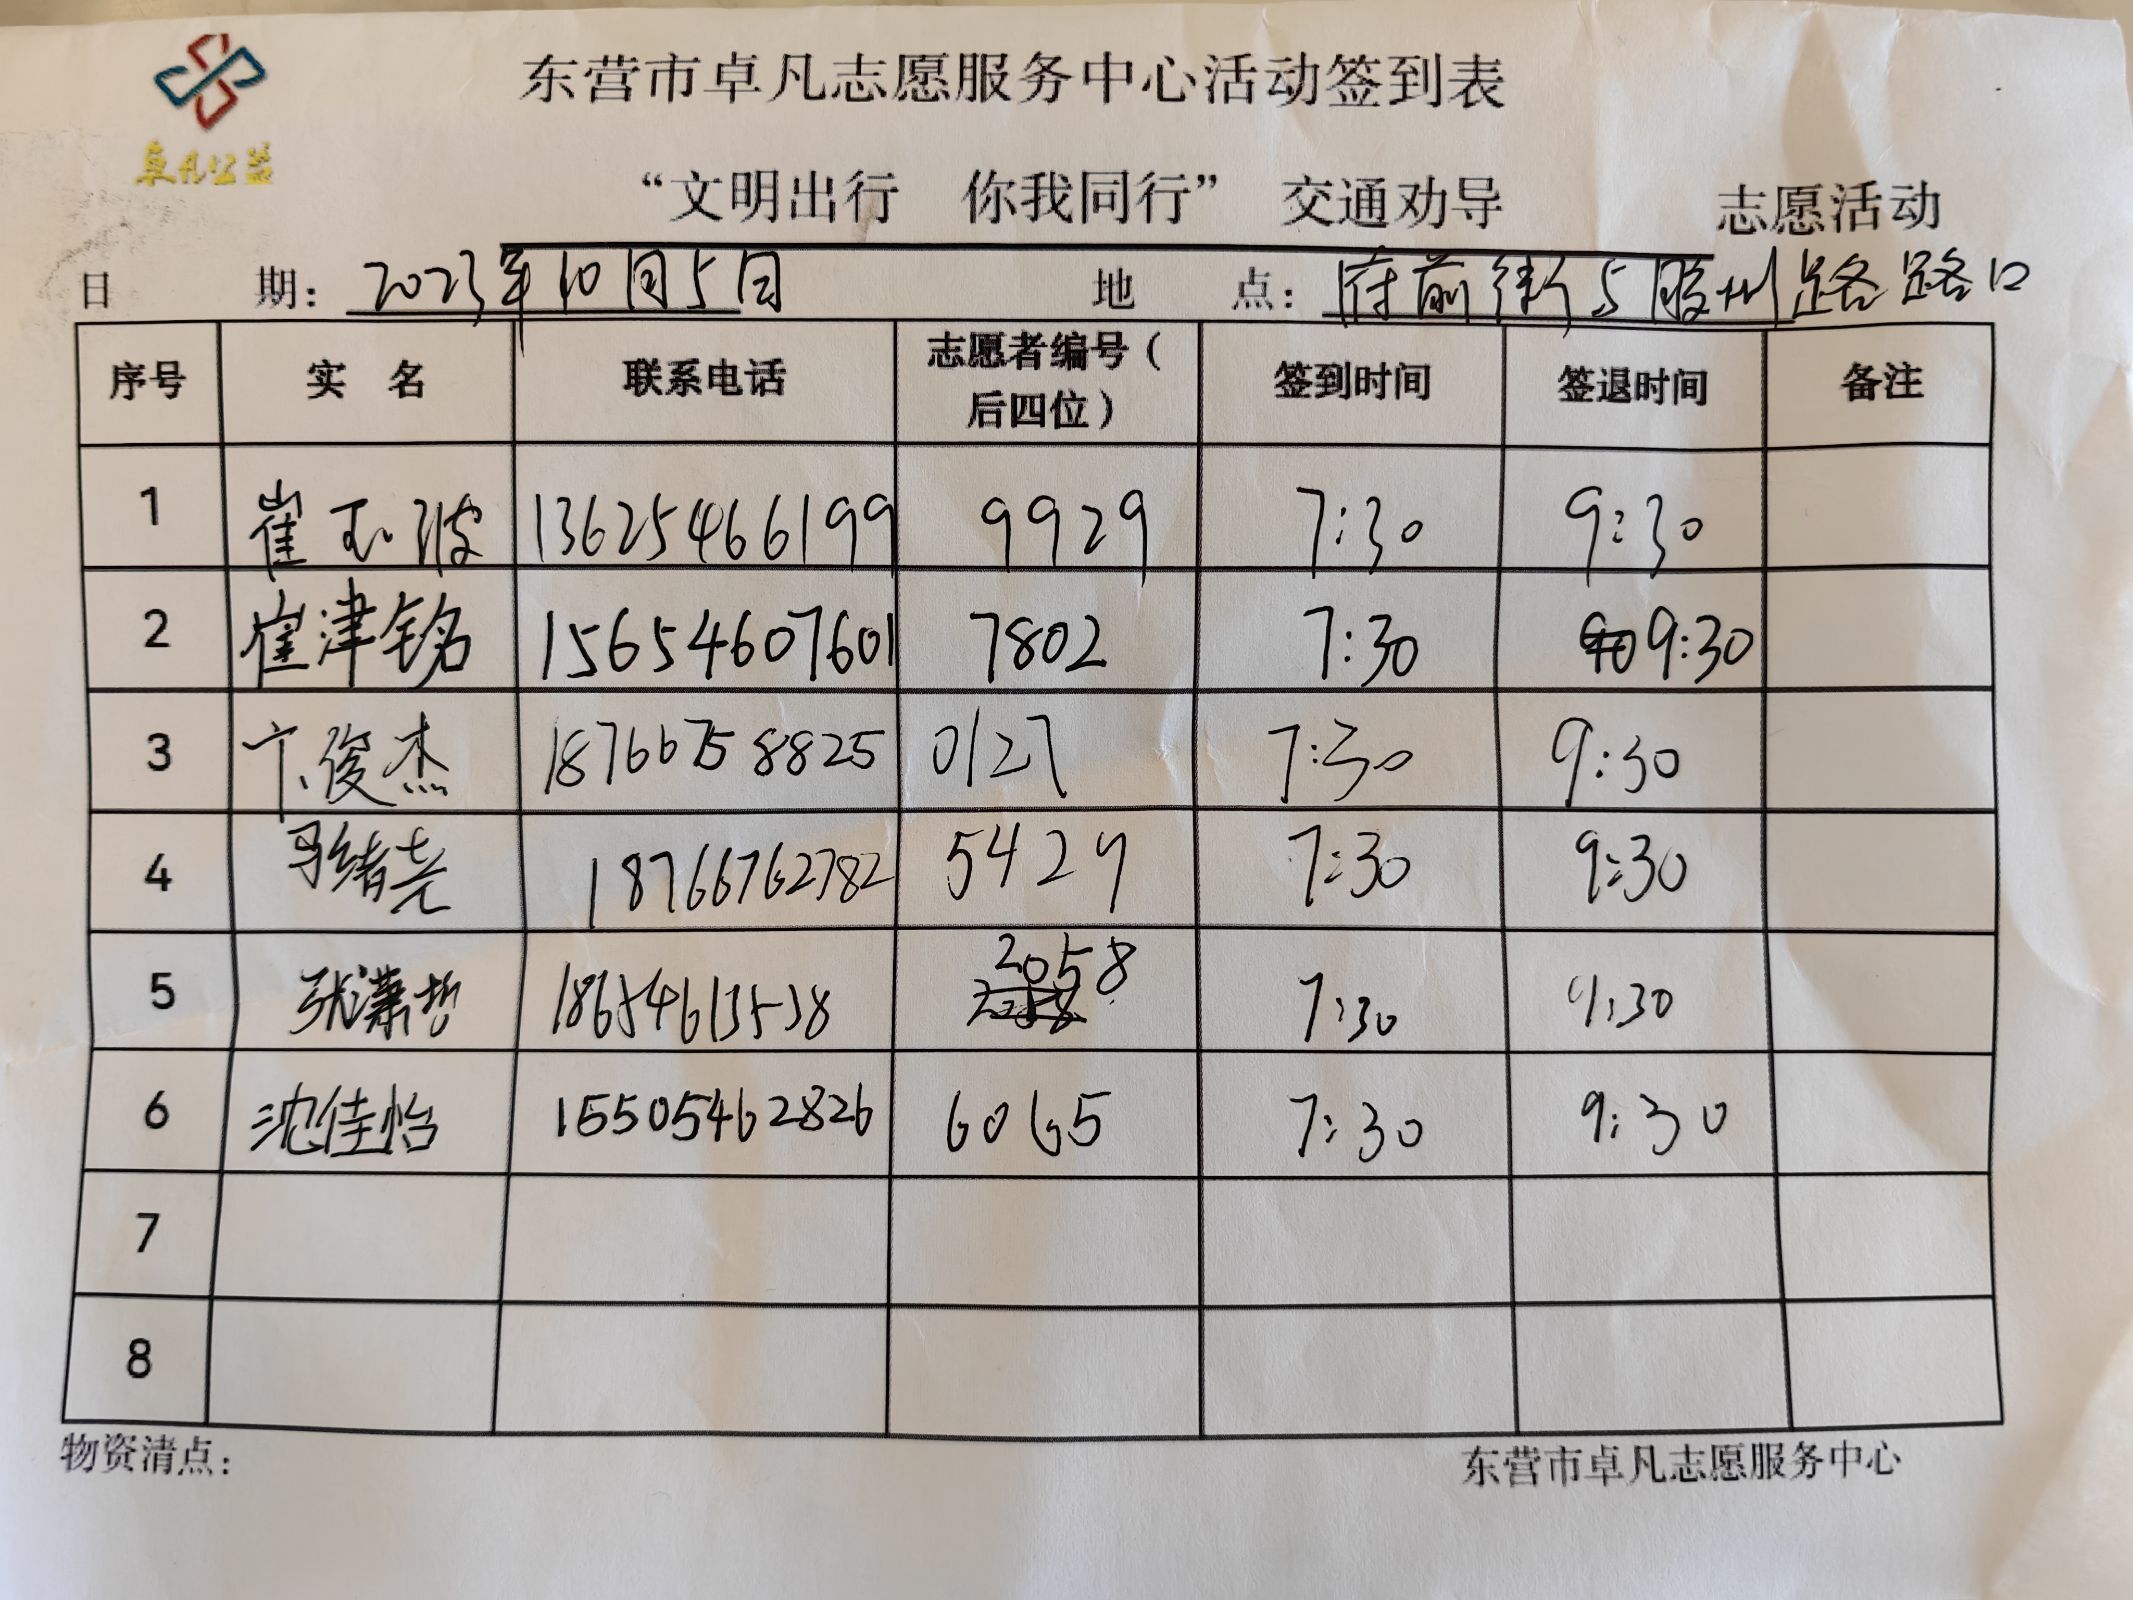 东营市卓凡志愿服务中心活动签到表
卓凡公益
“文明出行 你我同行” 交通劝导 志愿活动
日 期：2023年10月5日 地 点：府前街与胶州路路口
序号 实 名 联系电话 志愿者编号（后四位） 签到时间 签退时间 备注
1 崔玉波 13625466199 9929 7:30 9:30
2 崔津铭 15654607601 7802 7:30 9:30
3 卞俊杰 18766758825 0127 7:30 9:30
4 马绪尧 18766762782 5429 7:30 9:30
5 张潇哲 2058 7:30 9:30
6 沈佳怡 15505462826 6065 7:30 9:30
7
8
物资清点： 东营市卓凡志愿服务中心